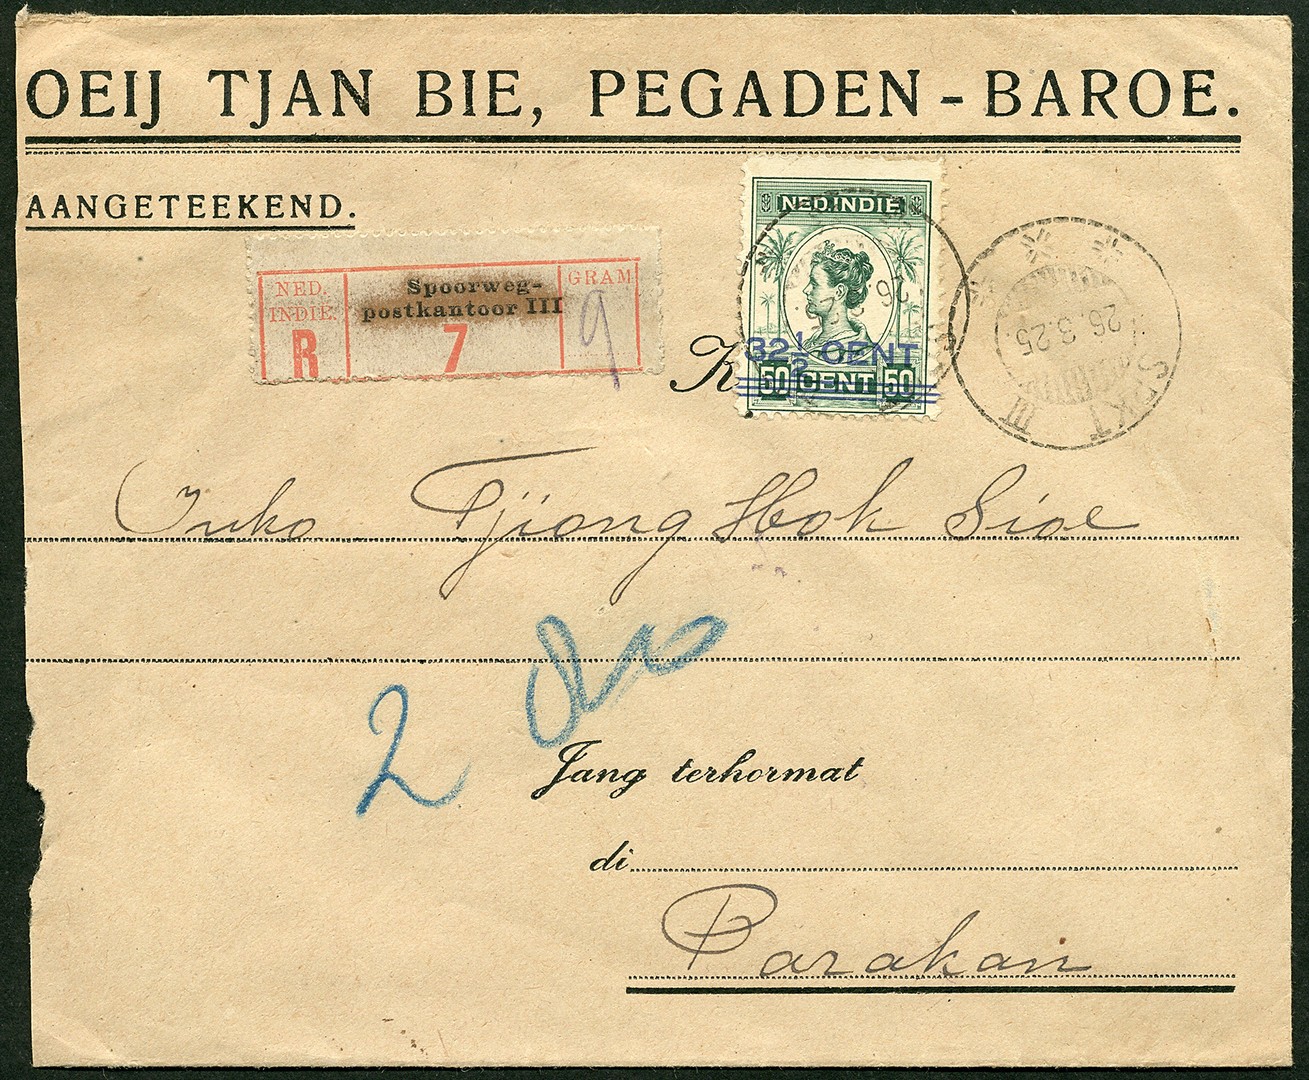 OEIJ TJAN BIE, PEGADEN-BAROE.
AANGETEEKEND.
NED. INDIE.
R
Spoorweg-
postkantoor III
7
GRAM
9
NED. INDIË
32½ CENT
50 CENT 50
26.3.25
III
K
Toko Tjiong Hok Sioe
2
Jang terhormat
di
Parakan